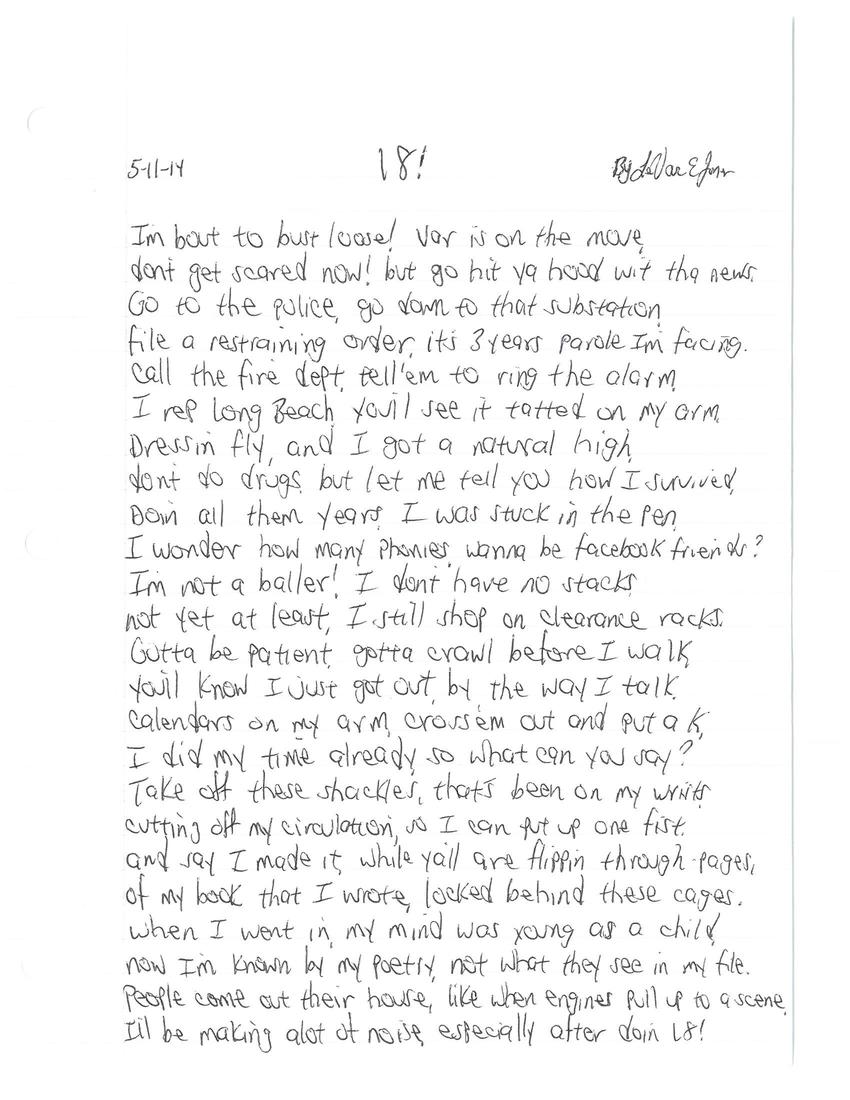 5-11-14 18! By LaVar E Jones
Im bout to bust loose! Var is on the move,
dont get scared now! but go hit ya hood wit tha news.
Go to the police, go down to that substation
file a restraining order, its 3 years parole Im facing.
Call the fire dept, tell'em to ring the alarm
I rep Long Beach, you'll see it tatted on my arm.
Dressin fly, and I got a natural high,
dont do drugs, but let me tell you how I survived,
Doin all them years, I was stuck in the pen
I wonder how many phonies, wanna be facebook friends?
Im not a baller! I don't have no stacks
not yet at least, I still shop on clearance racks.
Gotta be patient, gotta crawl before I walk,
you'll know I just got out, by the way I talk.
Calendars on my arm, cross'em out and put a k,
I did my time already, so what can you say?
Take off these shackles, that's been on my writs
cutting off my circulation, so I can put up one fist.
and say I made it, while ya'll are flippin through pages,
of my book that I wrote, locked behind these cages.
when I went in, my mind was young as a child,
now I'm known by my poetry, not what they see in my file.
People come out their house, like when engines pull up to a scene,
I'll be making alot of noise, especially after doin 18!